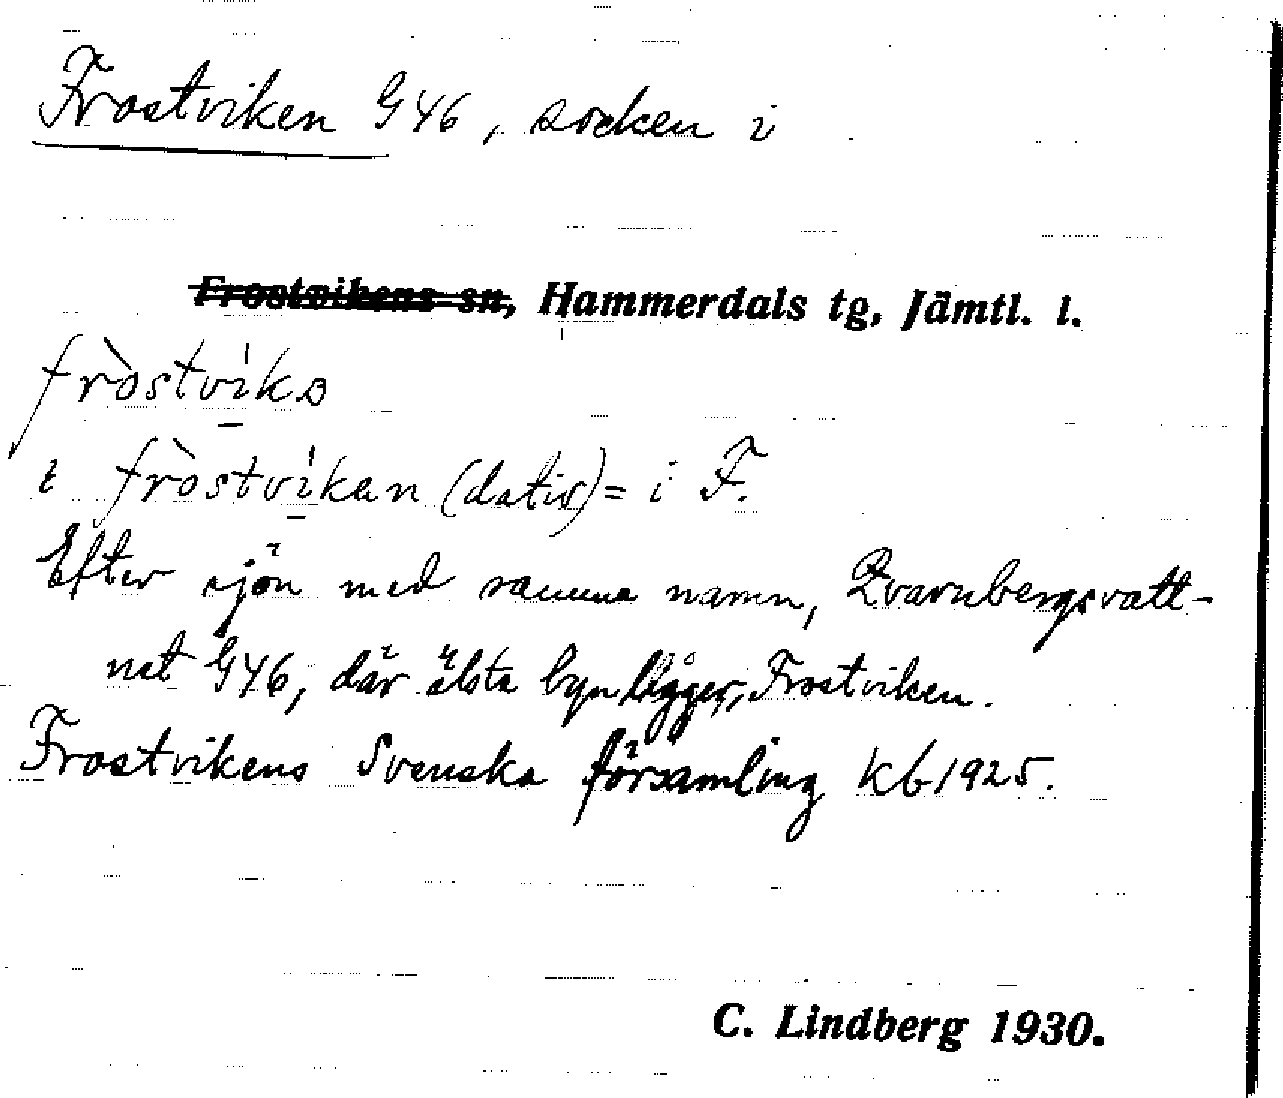 Frostviken G46, socken i
Frostvikens sn, Hammerdals tg, Jämtl. l.
fròstvi̱kɞ
i fròstvi̱kan (dativ) = i F.
Efter sjön med samma namn, Kvarnbergsvatt-
net G46, där älsta byn ligger, Frostviken.
Frostvikens Svenska församling Kb 1925.
C. Lindberg 1930.